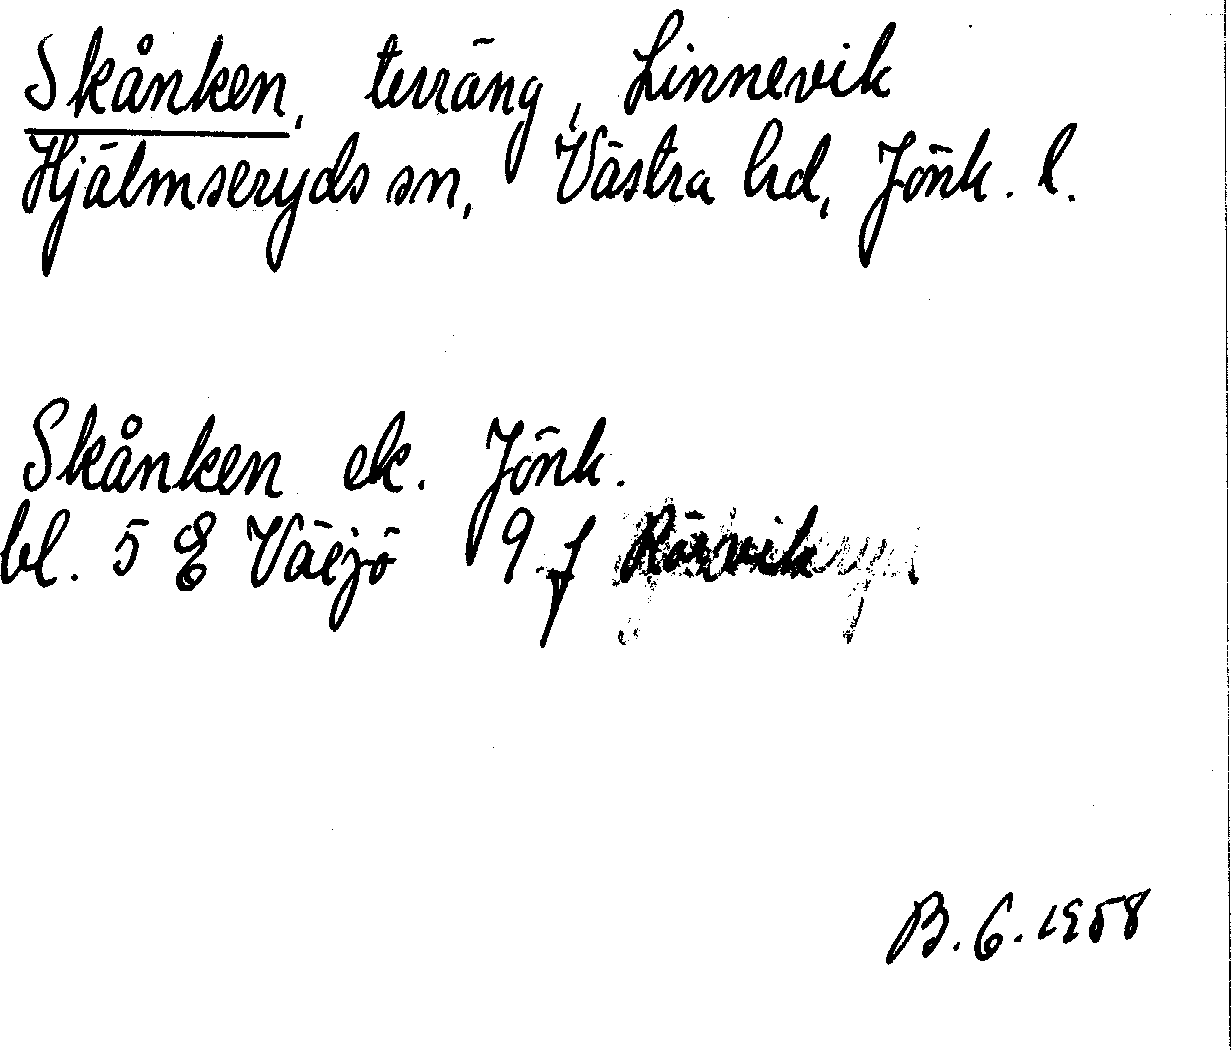 Skånken, terräng, Linnevik
Hjälmseryds sn, Västra hd, Jönk. l.
Skånken ek. Jönk.
bl. 5 E Växjö 9 f Rörvik
B. G. 1958